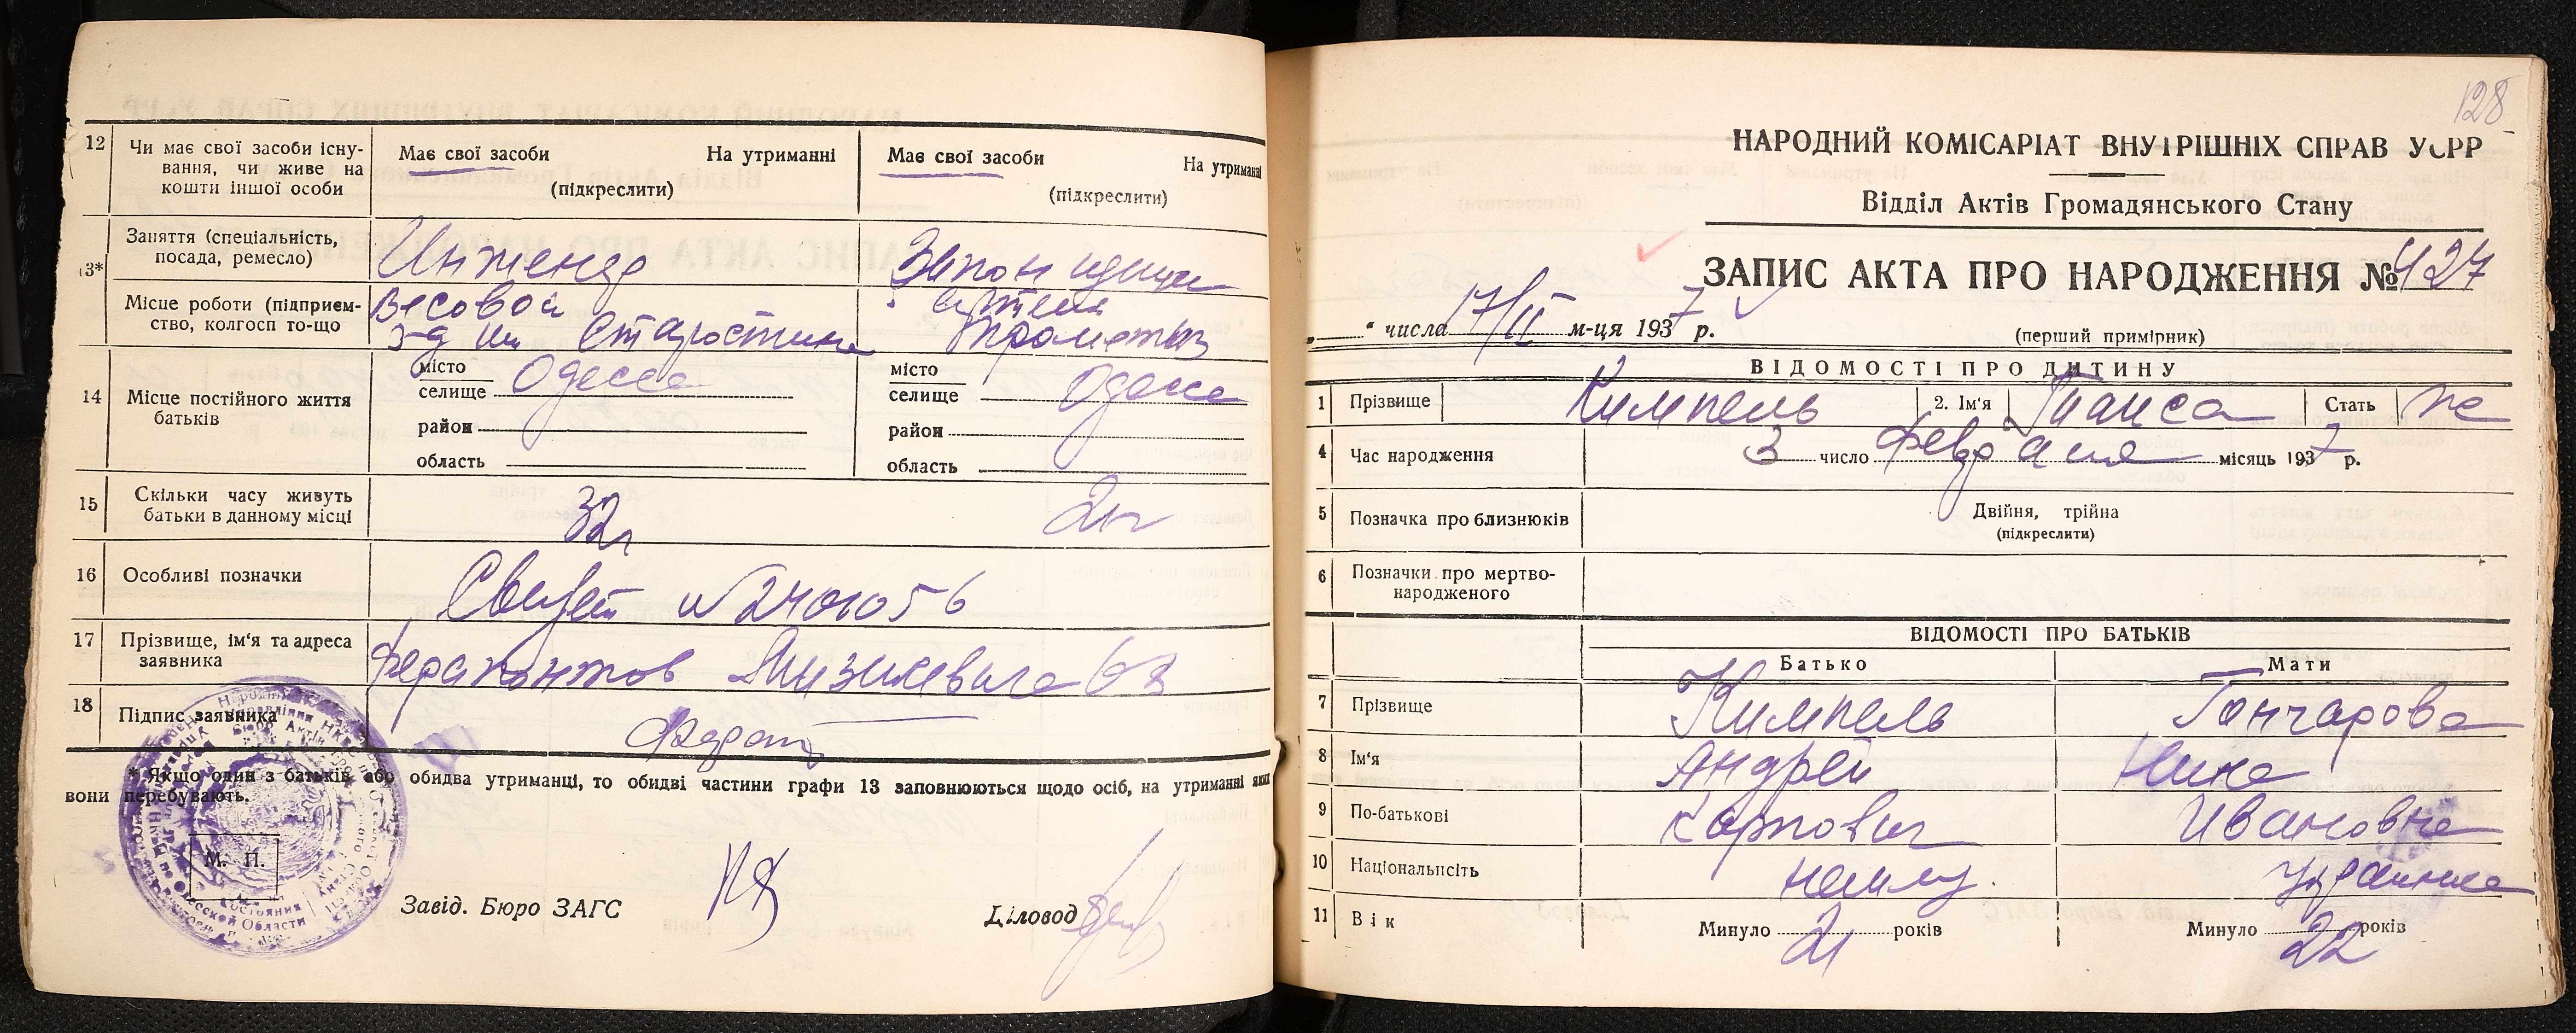 12
Чи має свої засоби існу-
вання, чи живе на
кошти іншої особи
Має свої засоби На утриманні
(підкреслити)
Має свої засоби На утриманні
(підкреслити)
13*
Заняття (спеціальність,
посада, ремесло)
Инженер
Місце роботи (підприєм-
ство, колгосп то-що
Весовой
з-д им Старостина
14
Місце постійного життя
батьків
місто
селище Одесса
район
область
місто
селище Одесса
район
область
15
Скільки часу живуть
батьки в данному місці
32г
21г
16
Особливі позначки
№ 2401056
17
Прізвище, ім‘я та адреса
заявника
Ферапонтов
18
Підпис заявника
* Якщо один з батьків або обидва утриманці, то обидві частини графи 13 заповнюються щодо осіб, на утриманні яких
вони перебувають.
М. П.
Завід. Бюро ЗАГС
Діловод
128
НАРОДНИЙ КОМІСАРІАТ ВНУТРІШНІХ СПРАВ УСРР
Відділ Актів Громадянського Стану
ЗАПИС АКТА ПРО НАРОДЖЕННЯ № 427
“ числа 17/II м-ця 1937 р.
(перший примірник)
ВІДОМОСТІ ПРО ДИТИНУ
1 Прізвище Кимпель 2. Ім‘я Таиса Стать ж
4 Час народження 3 число февраля місяць 1937 р.
5 Позначка про близнюків Двійня, трійна
(підкреслити)
6 Позначки про мертво-
народженого
ВІДОМОСТІ ПРО БАТЬКІВ
Батько Мати
7 Прізвище Кимпель Гончарова
8 Ім‘я Андрей Нина
9 По-батькові Карпович Ивановна
10 Національність немец. Украинка
11 Вік Минуло 21 років Минуло 22 років